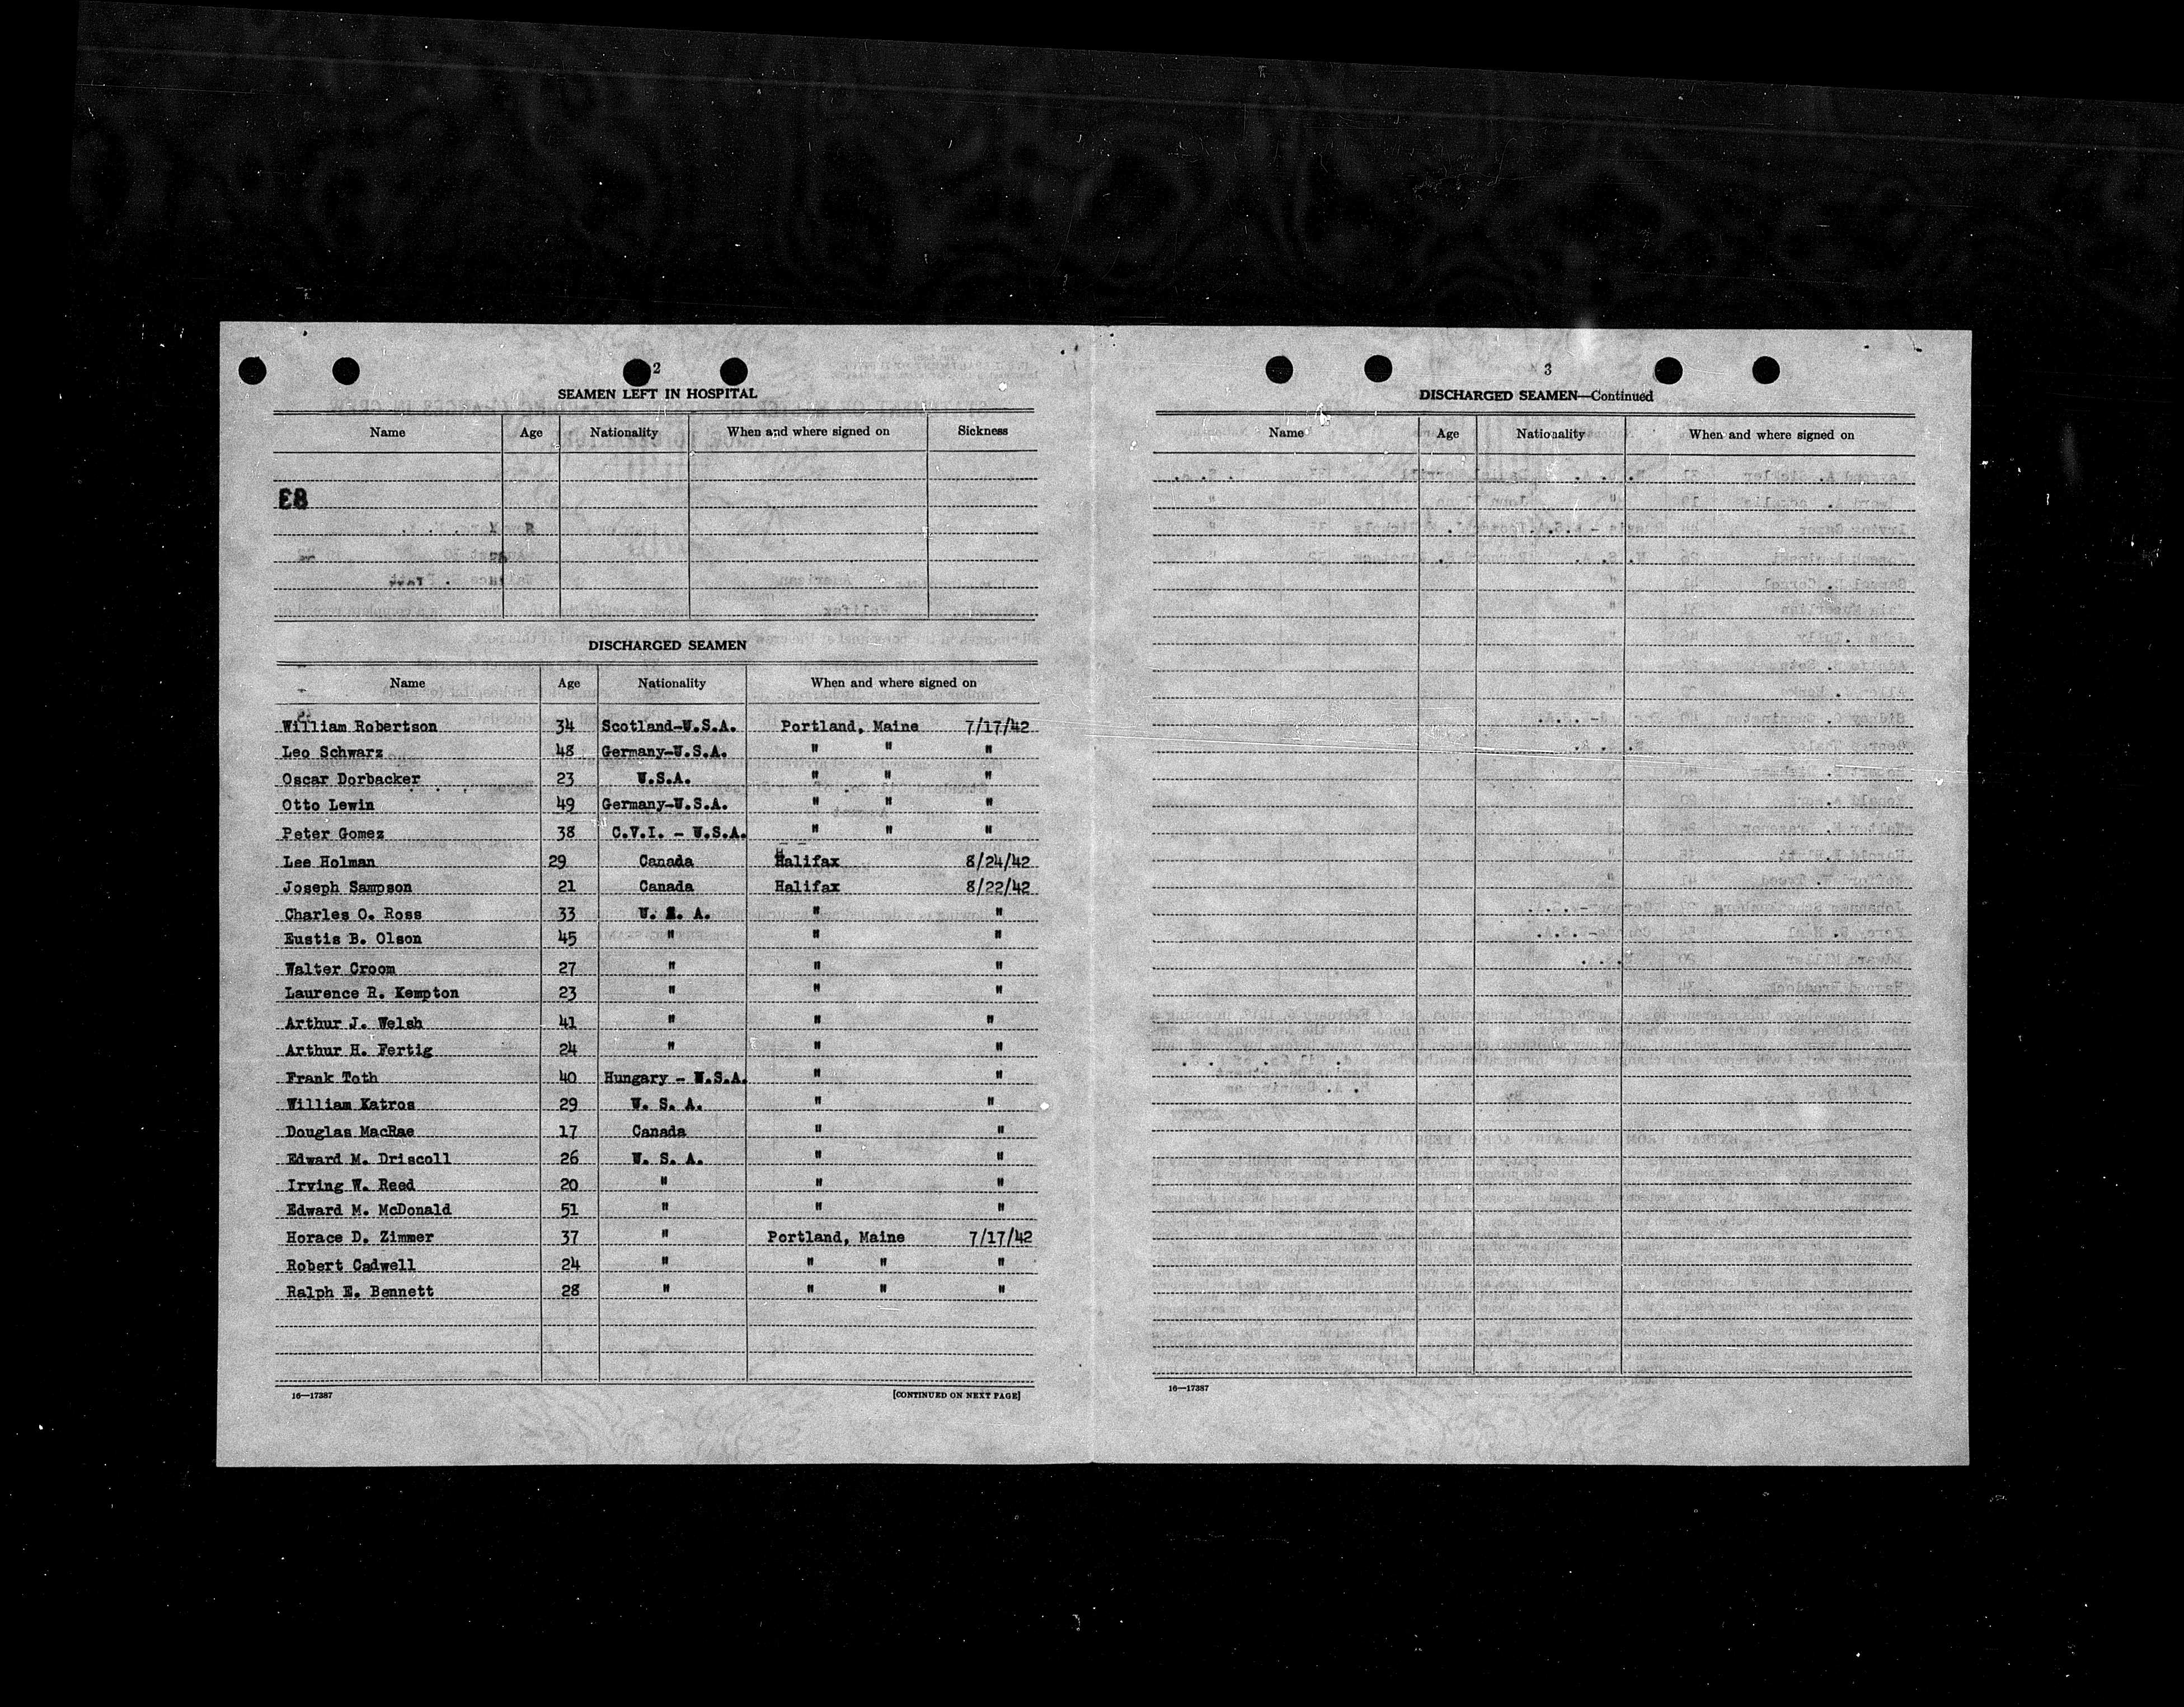 2
SEAMEN LEFT IN HOSPITAL
Name Age Nationality When and where signed on Sickness
DISCHARGED SEAMEN
Name Age Nationality When and where signed on
William Robertson 34 Scotland-U.S.A. Portland, Maine 7/17/42
Leo Schwarz 48 Germany-U.S.A. " " "
Oscar Dorbacker 23 U.S.A. " " "
Otto Lewin 49 Germany-U.S.A. " " "
Peter Gomez 38 C.V.I. - U.S.A. " " "
Lee Holman 29 Canada Halifax 8/24/42
Joseph Sampson 21 Canada Halifax 8/22/42
Charles O. Ross 33 U. S. A. " "
Eustis B. Olson 45 " " "
Walter Croom 27 " " "
Laurence R. Kempton 23 " " "
Arthur J. Welsh 41 " " "
Arthur H. Fertig 24 " " "
Frank Toth 40 Hungary - U.S.A. " "
William Katros 29 U. S. A. " "
Douglas MacRae 17 Canada " "
Edward M. Driscoll 26 U. S. A. " "
Irving W. Reed 20 " " "
Edward M. McDonald 51 " " "
Horace D. Zimmer 37 " Portland, Maine 7/17/42
Robert Cadwell 24 " " " "
Ralph E. Bennett 28 " " " "
16—17387 [CONTINUED ON NEXT PAGE]
3
DISCHARGED SEAMEN—Continued
Name Age Nationality When and where signed on
16—17387